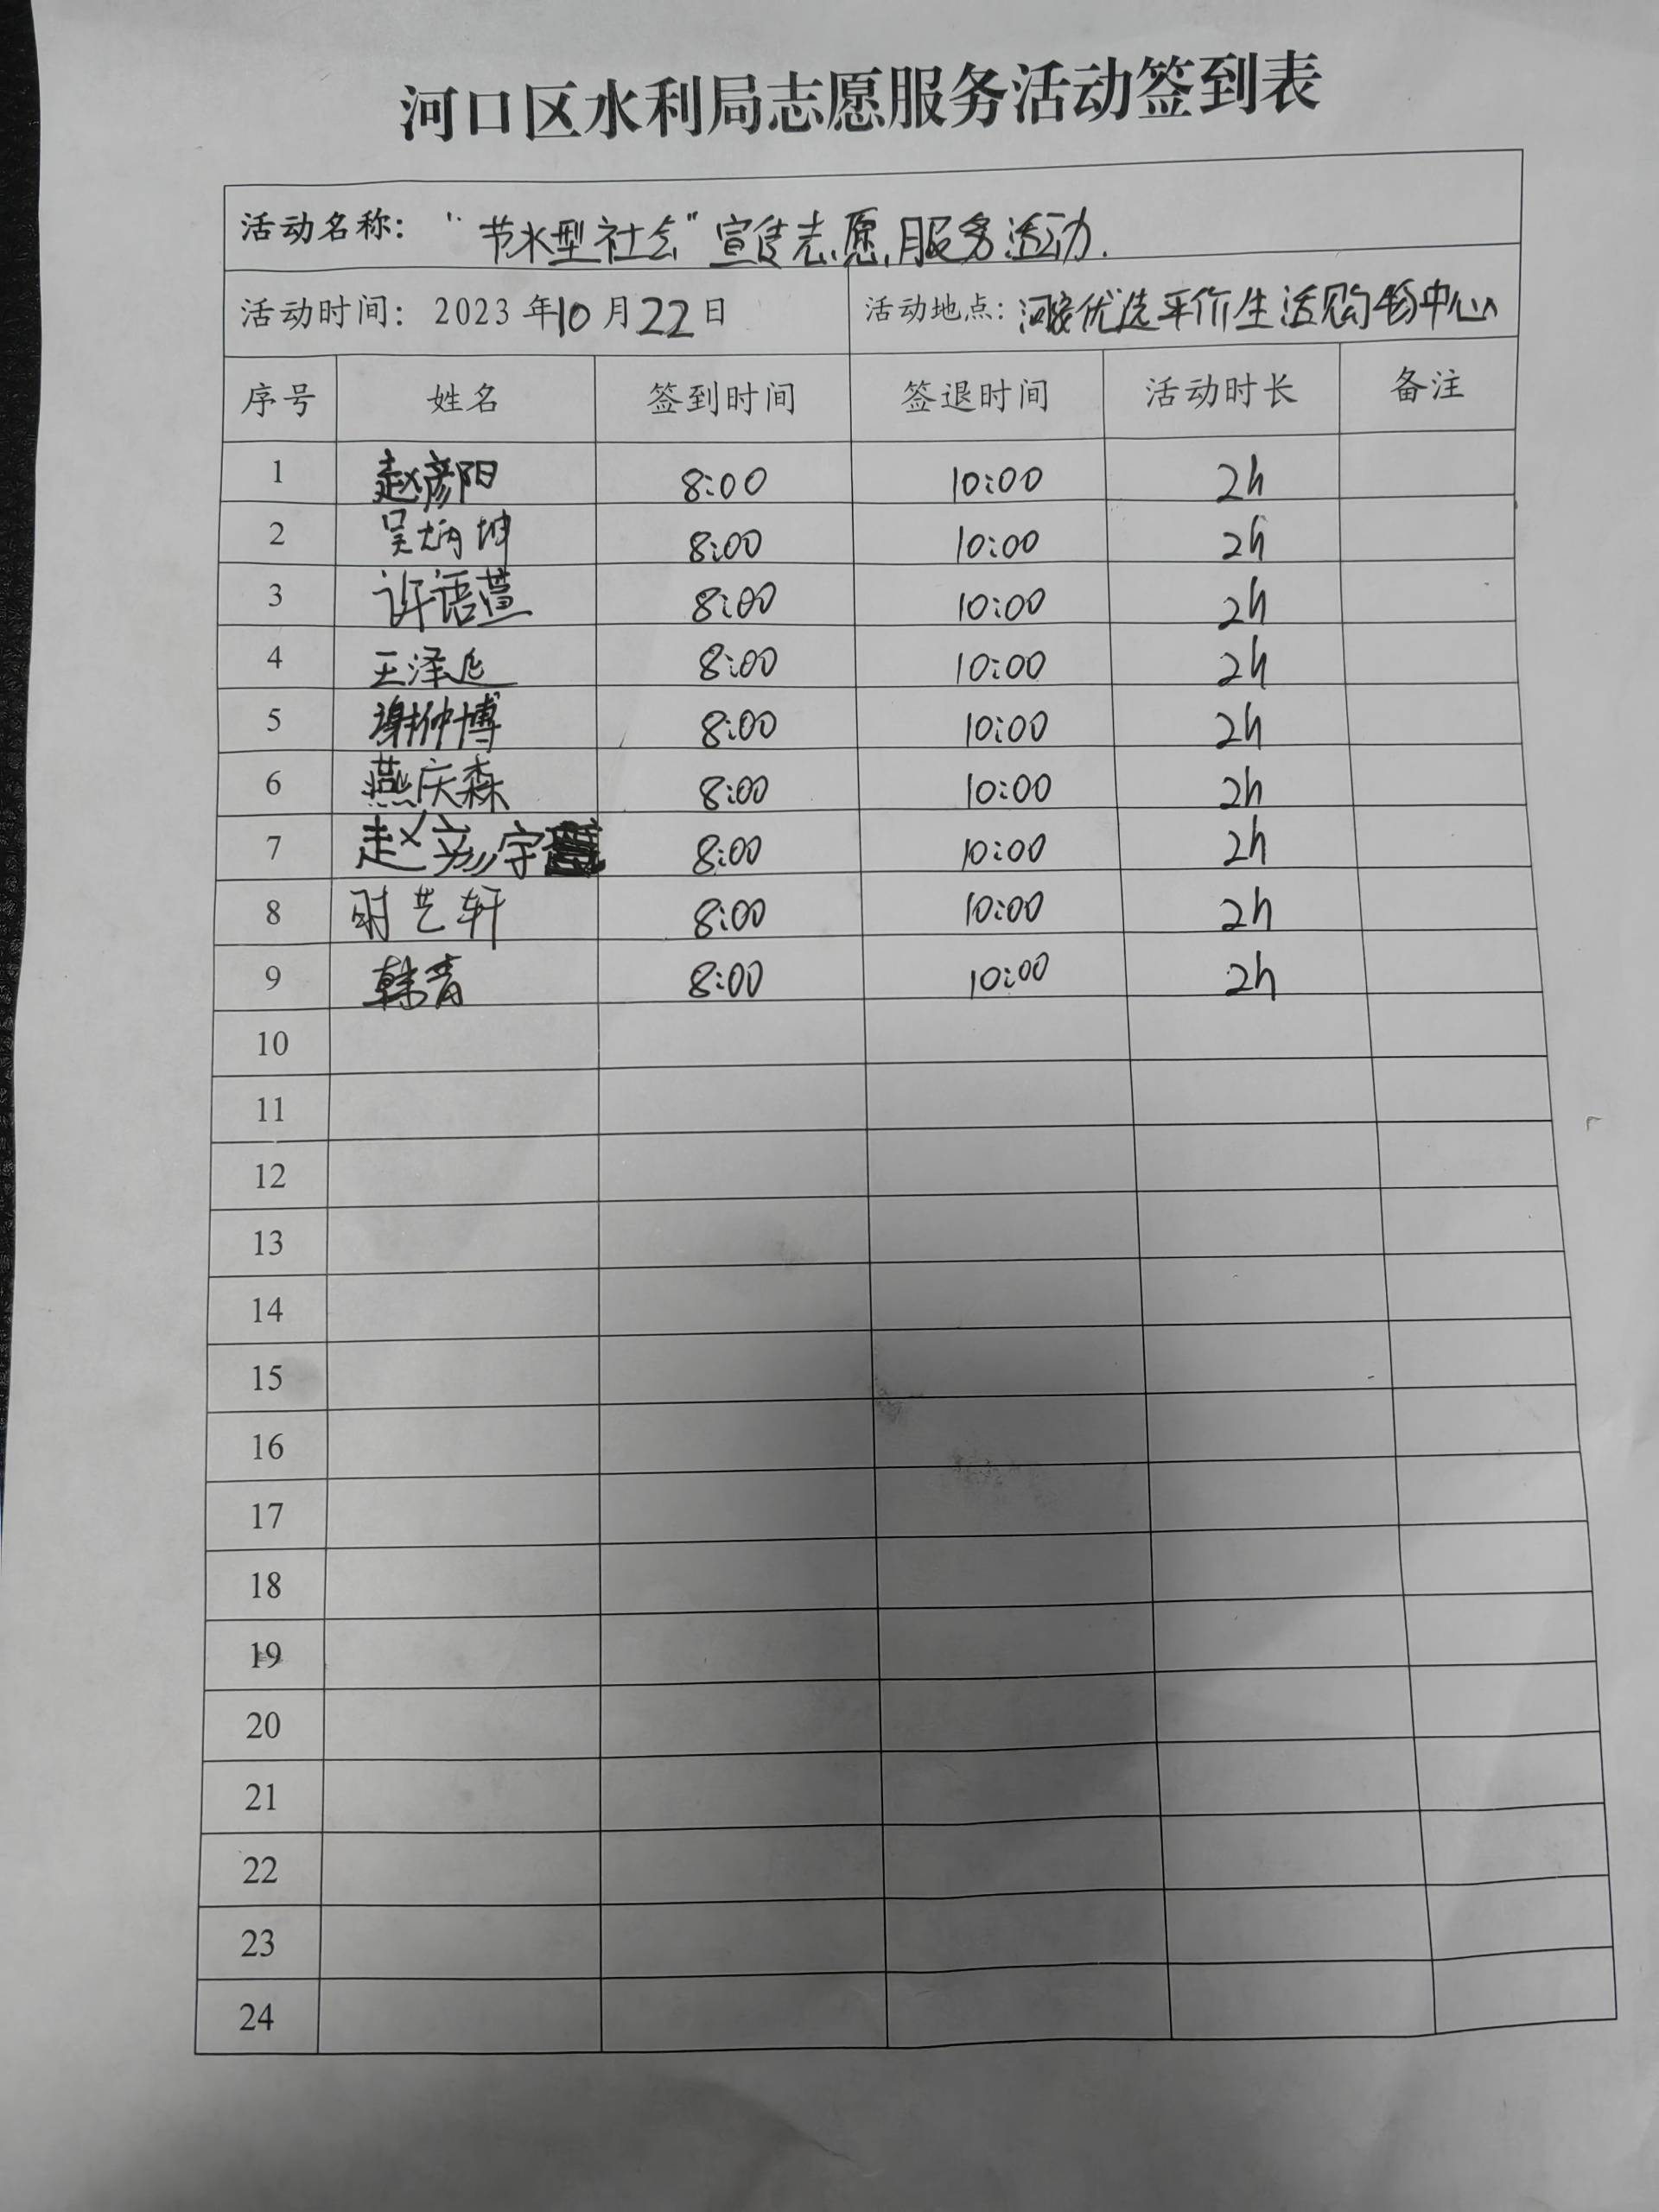 河口区水利局志愿服务活动签到表
活动名称： “节水型社会”宣传志愿服务活动.
活动时间： 2023 年10月22日 活动地点：河安优选平价生活购物中心
序号 姓名 签到时间 签退时间 活动时长 备注
1 赵彦阳 8:00 10:00 2h
2 吴炳坤 8:00 10:00 2h
3 许语萱 8:00 10:00 2h
4 王泽 8:00 10:00 2h
5 谢仲博 8:00 10:00 2h
6 燕庆森 8:00 10:00 2h
7 赵彦宇 8:00 10:00 2h
8 时艺轩 8:00 10:00 2h
9 韩青 8:00 10:00 2h
10
11
12
13
14
15
16
17
18
19
20
21
22
23
24